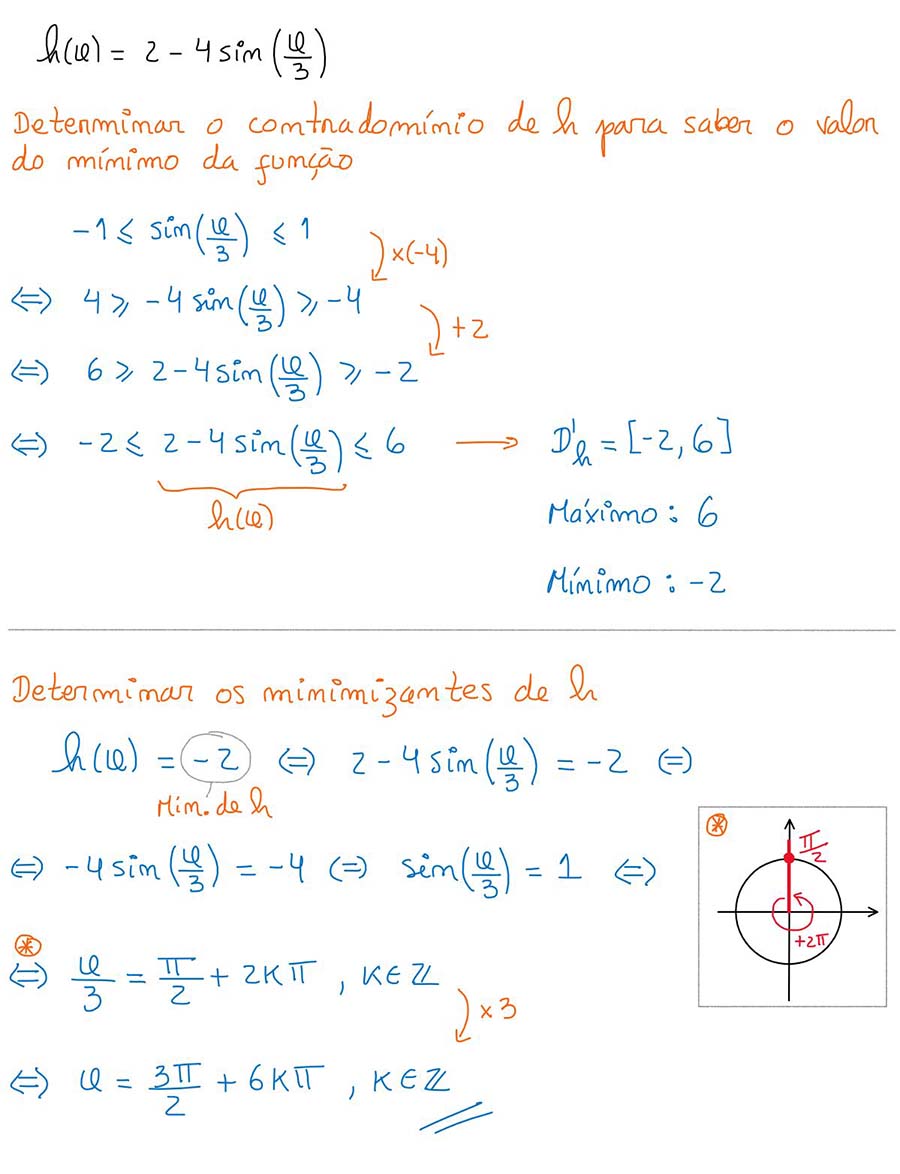 h(φ) = 2 - 4 sin(φ/3)
Determinar o contradomínio de h para saber o valor
do mínimo da função
-1 ⩽ sin(φ/3) ⩽ 1
×(-4)
⇔ 4 ⩾ -4 sin(φ/3) ⩾ -4
+2
⇔ 6 ⩾ 2-4 sin(φ/3) ⩾ -2
⇔ -2 ⩽ 2-4 sin(φ/3) ⩽ 6 → D'h = [-2, 6]
h(φ)
Máximo : 6
Mínimo : -2
Determinar os minimizantes de h
h(φ) = -2 ⇔ 2-4 sin(φ/3) = -2 ⇔
Mín. de h
⇔ -4 sin(φ/3) = -4 ⇔ sin(φ/3) = 1 ⇔
*
π/2
+2π
*
⇔ φ/3 = π/2 + 2kπ , k∈ℤ
×3
⇔ φ = 3π/2 + 6kπ , k∈ℤ